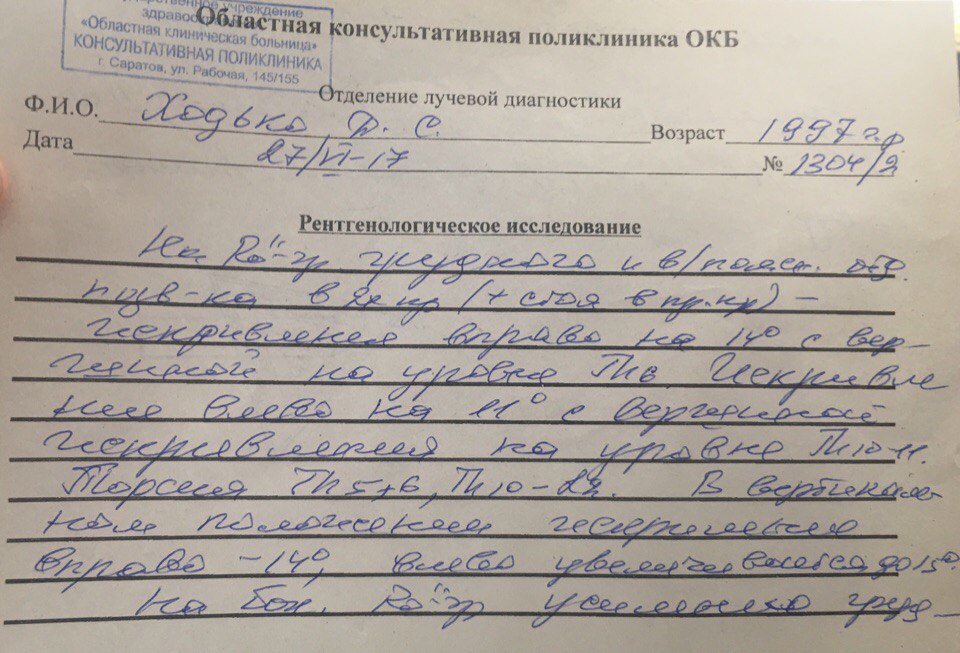 учреждение
здравоо
«Областная клиническая больница»
КОНСУЛЬТАТИВНАЯ ПОЛИКЛИНИКА
г. Саратов, ул. Рабочая, 145/155
Областная консультативная поликлиника ОКБ
Отделение лучевой диагностики
Ф.И.О. Ходько Д. С. Возраст 1997 г.р
Дата 27/VI-17 № 1304/2
Рентгенологическое исследование
На Rö-гр. грудного и в/пояс. отд.
позв-ка в 2х пр (+ стоя в пр. пр) –
искривление вправо на 14° с вер-
шиной на уровне Th6. Искривле
ние влево на 11° с вершиной
искривления на уровне Th10-11.
Торсия Th5+6, Th10- В вертикаль-
ном положении искривление
вправо – 14°, влево увеличивается до 15°.
На бок. Rö-гр усилено груд–